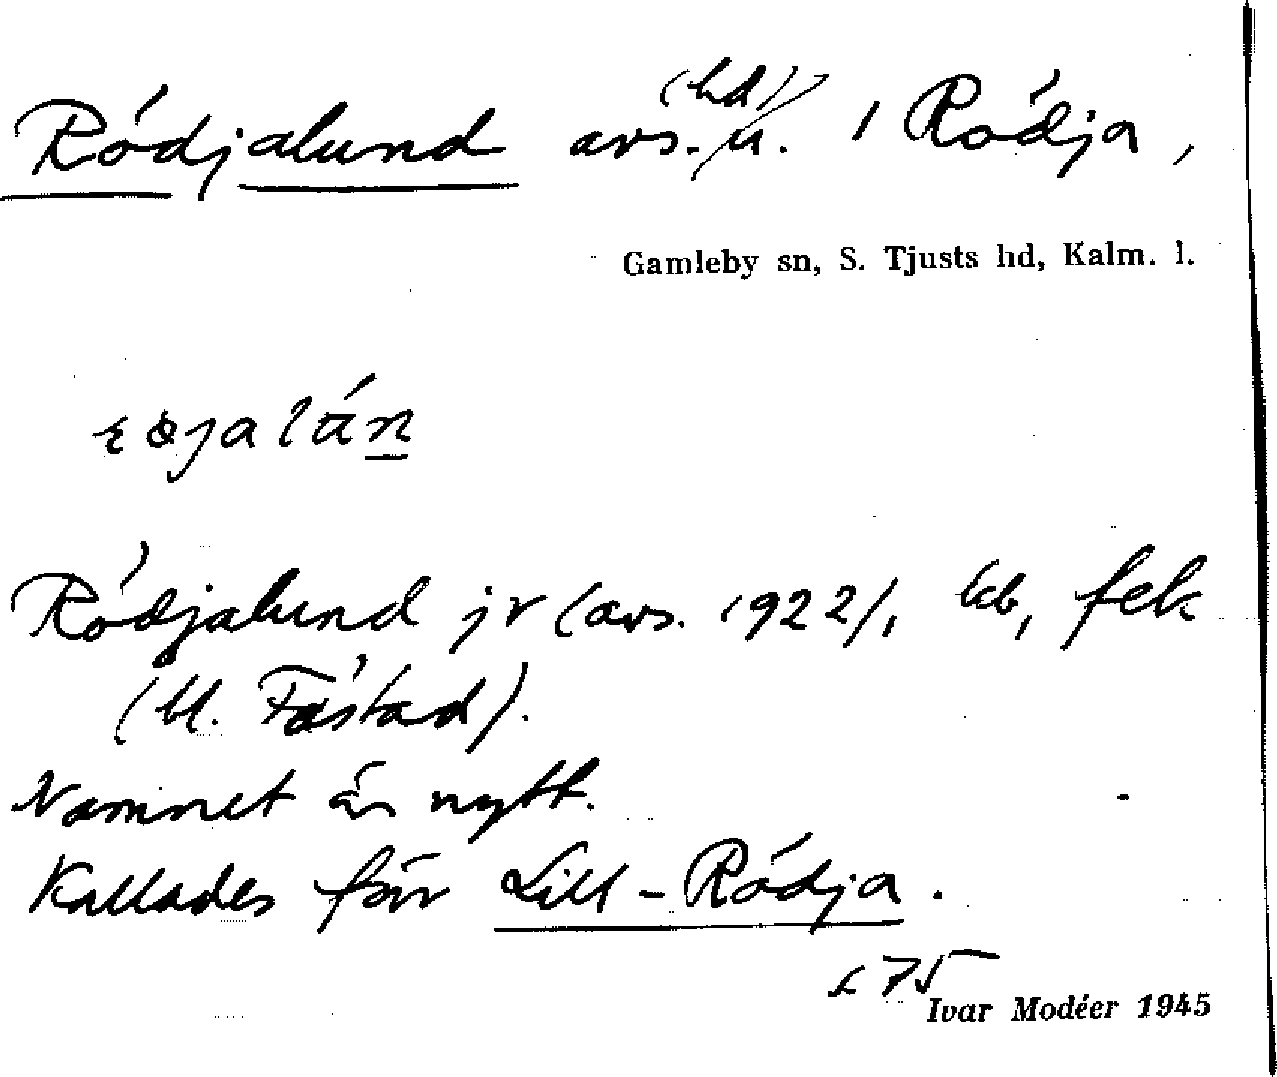 Rödjalund avs. u. (hd) i Rödja,
Gamleby sn, S. Tjusts hd, Kalm. l.
Rödjalund jr (avs. 1922), kb, fek
(M. Fästad).
Namnet är nytt.
Kallades förr Lill-Rödja.
s 75
Ivar Modéer 1945